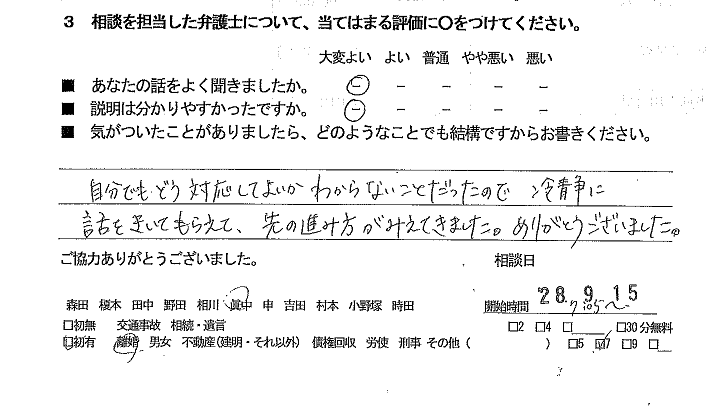 3 相談を担当した弁護士について、当てはまる評価に〇をつけてください。
大変よい よい 普通 やや悪い 悪い
■ あなたの話をよく聞きましたか。 － － － － －
■ 説明は分かりやすかったですか。 － － － － －
■ 気がついたことがありましたら、どのようなことでも結構ですからお書きください。
自分でもどう対応してよいかわからないことだったので 冷静に
話をきいてもらえて、先の進み方がみえてきました。ありがとうございました。
ご協力ありがとうございました。 相談日
'28. 9. 15
森田 榎本 田中 野田 相川 眞中 申 吉田 村本 小野塚 時田 開始時間
□初無 交通事故 相続・遺言 □2 □4 □ □30分無料
□初有 離婚 男女 不動産(建明・それ以外) 債権回収 労使 刑事 その他( ) □5 ☑7 □9 □